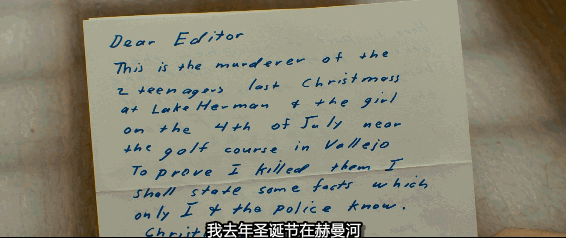 Dear Editor
This is the murderer of the
2 teenagers last Christmass
at Lake Herman & the girl
on the 4th of July near
the golf course in Vallejo
To prove I killed them I
shall state some facts which
only I & the police know.
Christ
我去年圣诞节在赫曼河